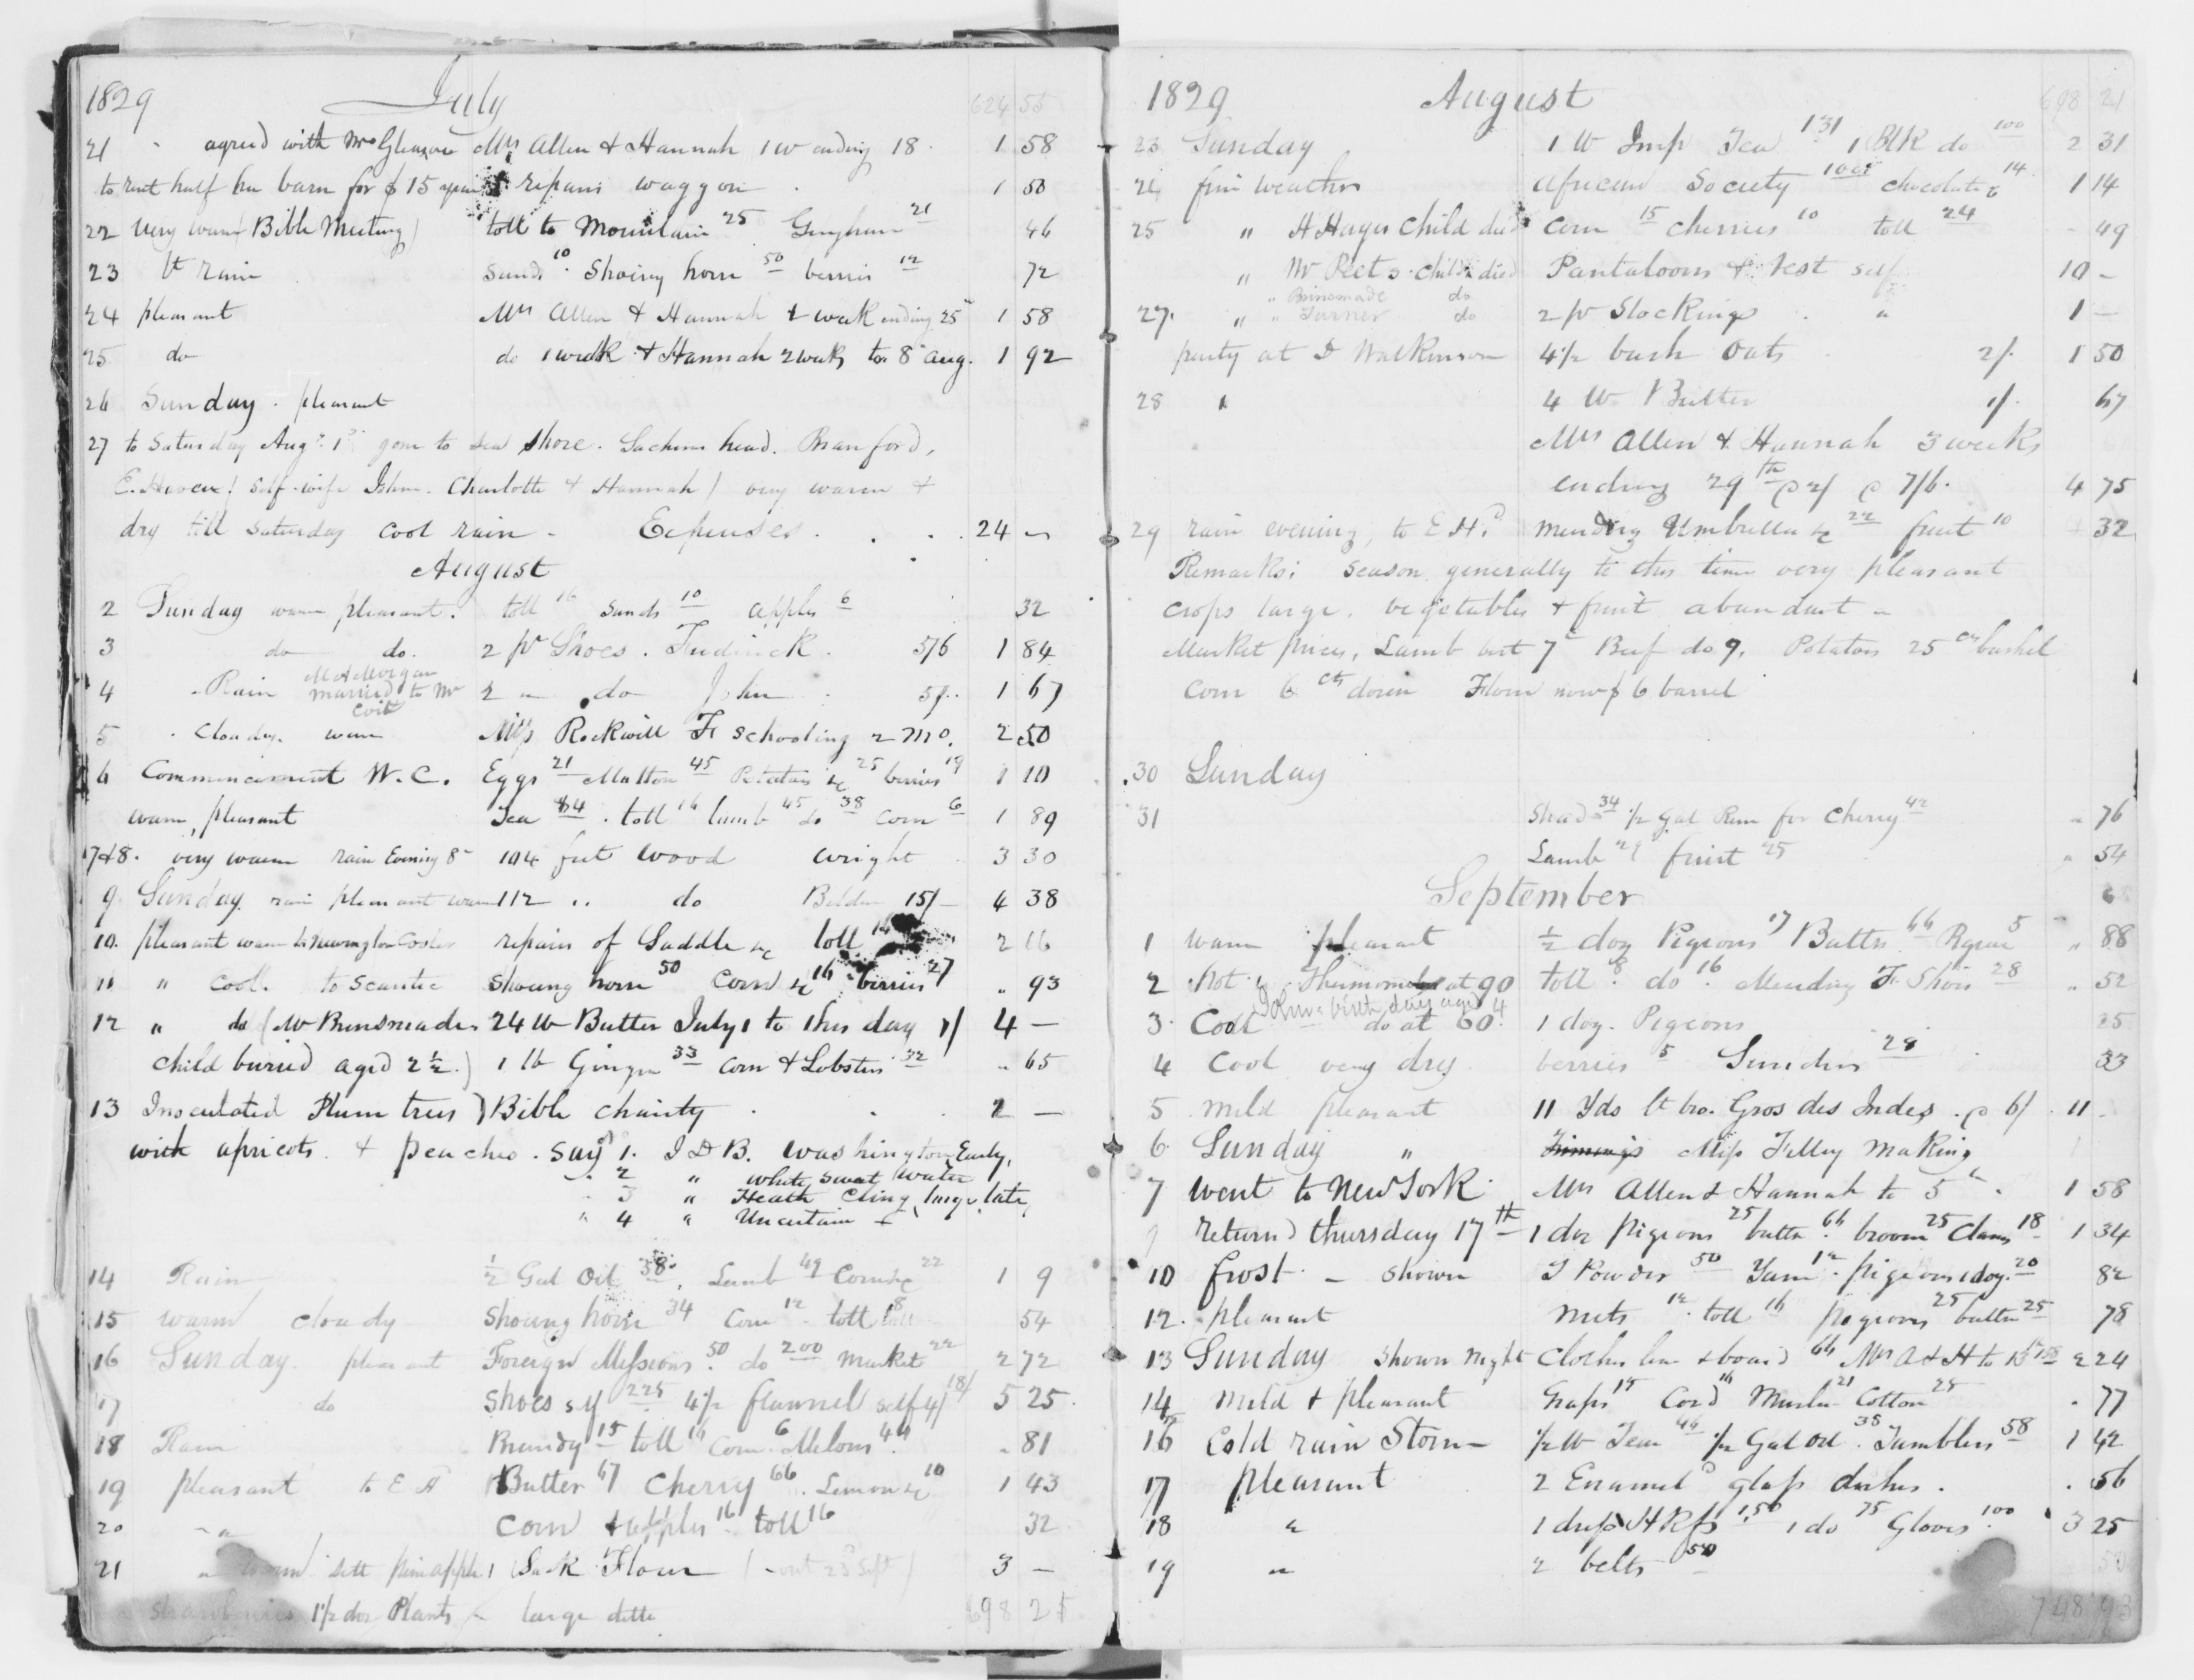 1829 July 624 55
21 " agreed with Mrs Gleason Mrs Allen & Hannah 1 w ending 18 1 58
to rent half her barn for $15 a year repairs waggon 1 50
22 very warm (Bible Meeting) toll to Mountain 25 Gingham 21 46
23 lt rain Sand 10 Shoeing horse 50 berries 12 72
24 pleasant Mrs Allen & Hannah 1 week ending 25 1 58
25 do do 1 week & Hannah 2 weeks to 8 Aug. 1 92
26 Sunday. pleasant
27 to Saturday Augt 1st gone to Sea Shore. Sachems head. Branford,
self wife John. Charlotte & Hannah) very warm &
dry till Saturday cool rain - Expenses . . . 24 -
August
2 Sunday warm pleasant. toll 16 sands 10 apples 6 32
3 do do. 2 pr Shoes. Frederick. 5/6 1 84
4 Rain M A Morgan married to Mr Coit 2 " do John 5/. 1 67
5 Cloudy. warm Miss Rockwell F schooling 2 mo. 2 50
6 Commencement W. C. Eggs 21 Mutton 45 Potatoes &c 25 berries 19 1 10
warm, pleasant Tea 84 . toll 16 lamb 45 do 38 corn 6 1 89
7 & 8. very warm rain Evening 8 104 feet wood Wright 3 30
9 Sunday rain pleasant warm 112 .. do Belden 15/- 4 38
10. pleasant warm to Newington repairs of Saddle &c toll 2 16
11 " cool. to Scantic Shoeing horse 50 Corn &c 16 berries 27 .. 93
12 " do (Mr Brinsmades 24 lb Butter July 1 to this day 1/ 4 -
child buried aged 2 1/2.) 1 lb Ginger 33 corn & Lobsters 32 .. 65
13 Inoculated Plum trees ) Bible charity . . . 2 -
with apricots. & peaches. say 1. I D B. Washington Early,
2 " white sweet water
3 " Heath Cling, large, late,
" 4 " Uncertain
14 Rain 1/2 Gal Oil 38. Lamb 49 Corn &c 22 1 9
15 warm cloudy Shoeing horse 34 Corn 12 toll 8 54
16 Sunday. pleasant Foreign Missions 50 do 200 market 22 2 72
17 do Shoes self 225 4 1/2 flannel self 4/ 18/ 5 25
18 Rain Brandy 15 toll 16 Corn 6 Melons 44 . 81
19 pleasant to E H Butter 67 Cherry 66. Lemon &c 10 1 43
20 " Corn & apples 16 toll 16 32
21 " warm sett pineapple 1 Sack Flour ( out 23 Sept ) 3 -
strawberries 1 1/2 doz Plants large ditto 698 21
1829 August 698 21
23 Sunday 1 lb Imp Tea 131 1 Blk do 100 2 31
24 fine weather African Society 100 chocolate &c 14 1 14
25 " H Hayes Child died Corn 15 cherries 10 toll 24 - 49
" Mr Peets child died Pantaloons & vest self 10 -
" Brinsmade do
27. " " Turner do 2 pr Stockings . " 1 -
party at D Watkinson 4 1/2 bush Oats 2/. 1 50
28 " 4 lb Butter 1/. 67
Mrs Allen & Hannah 3 weeks
ending 29th @ 2/ @ 7/6. 4 75
29 rain evening, to E Hd mending Umbrella &c 22 fruit 10 32
Remarks: season generally to this time very pleasant
crops large. vegetables & fruit abundant "
Market prices, Lamb best 7c Beef do 9, Potatoes 25 cts bushel
Corn 6 cts dozen Flour now $6 barrel
30 Sunday
31 Shad 34 1/2 gal Rum for Cherry 42 " 76
Lamb 29 fruit 25 " 54
September
1 warm pleasant 1/2 doz Pigeons 17 Butter 66 5 " 88
2 Hot " Thermometer at 90 toll 8 do 16 Mending F Shoes 28 .. 52
Johns birth day aged 4
3 Cool do at 60. 1 doz. Pigeons 25
4 Cool very dry berries 5 Sundries 28 33
5 mild pleasant 11 Yds lt bro. Gros des Indes. @ 6/ . 11 -
6 Sunday " Trimmings Miss Filley making
7 went to New York. Mrs Allen & Hannah to 5 " . 1 58
returnd thursday 17th 1 doz pigeons 25 butter 66 broom 25 Clams 18 1 34
10 frost - shower T Powder 50 Yarn 12 pigeons 1 doz. 20 82
12. pleasant nuts 12 toll 16 pigeons 25 butter 25 78
13 Sunday shower night Clothes line & board 66 Mrs A & H to 12 158 2 24
14 mild & pleasant Grapes 15 Cord 16 Muslin 21 Cotton 25 . 77
16 Cold rain Storm 1/2 lb Tea 46 1/2 Gal Oil 38 Tumblers 58 1 42
17 pleasant 2 Enameld glass dishes . . 56
18 " 1 dress Hkfs 1,50 1 do 75 Gloves 100 3 25
19 " 2 belts 50 50
748 93